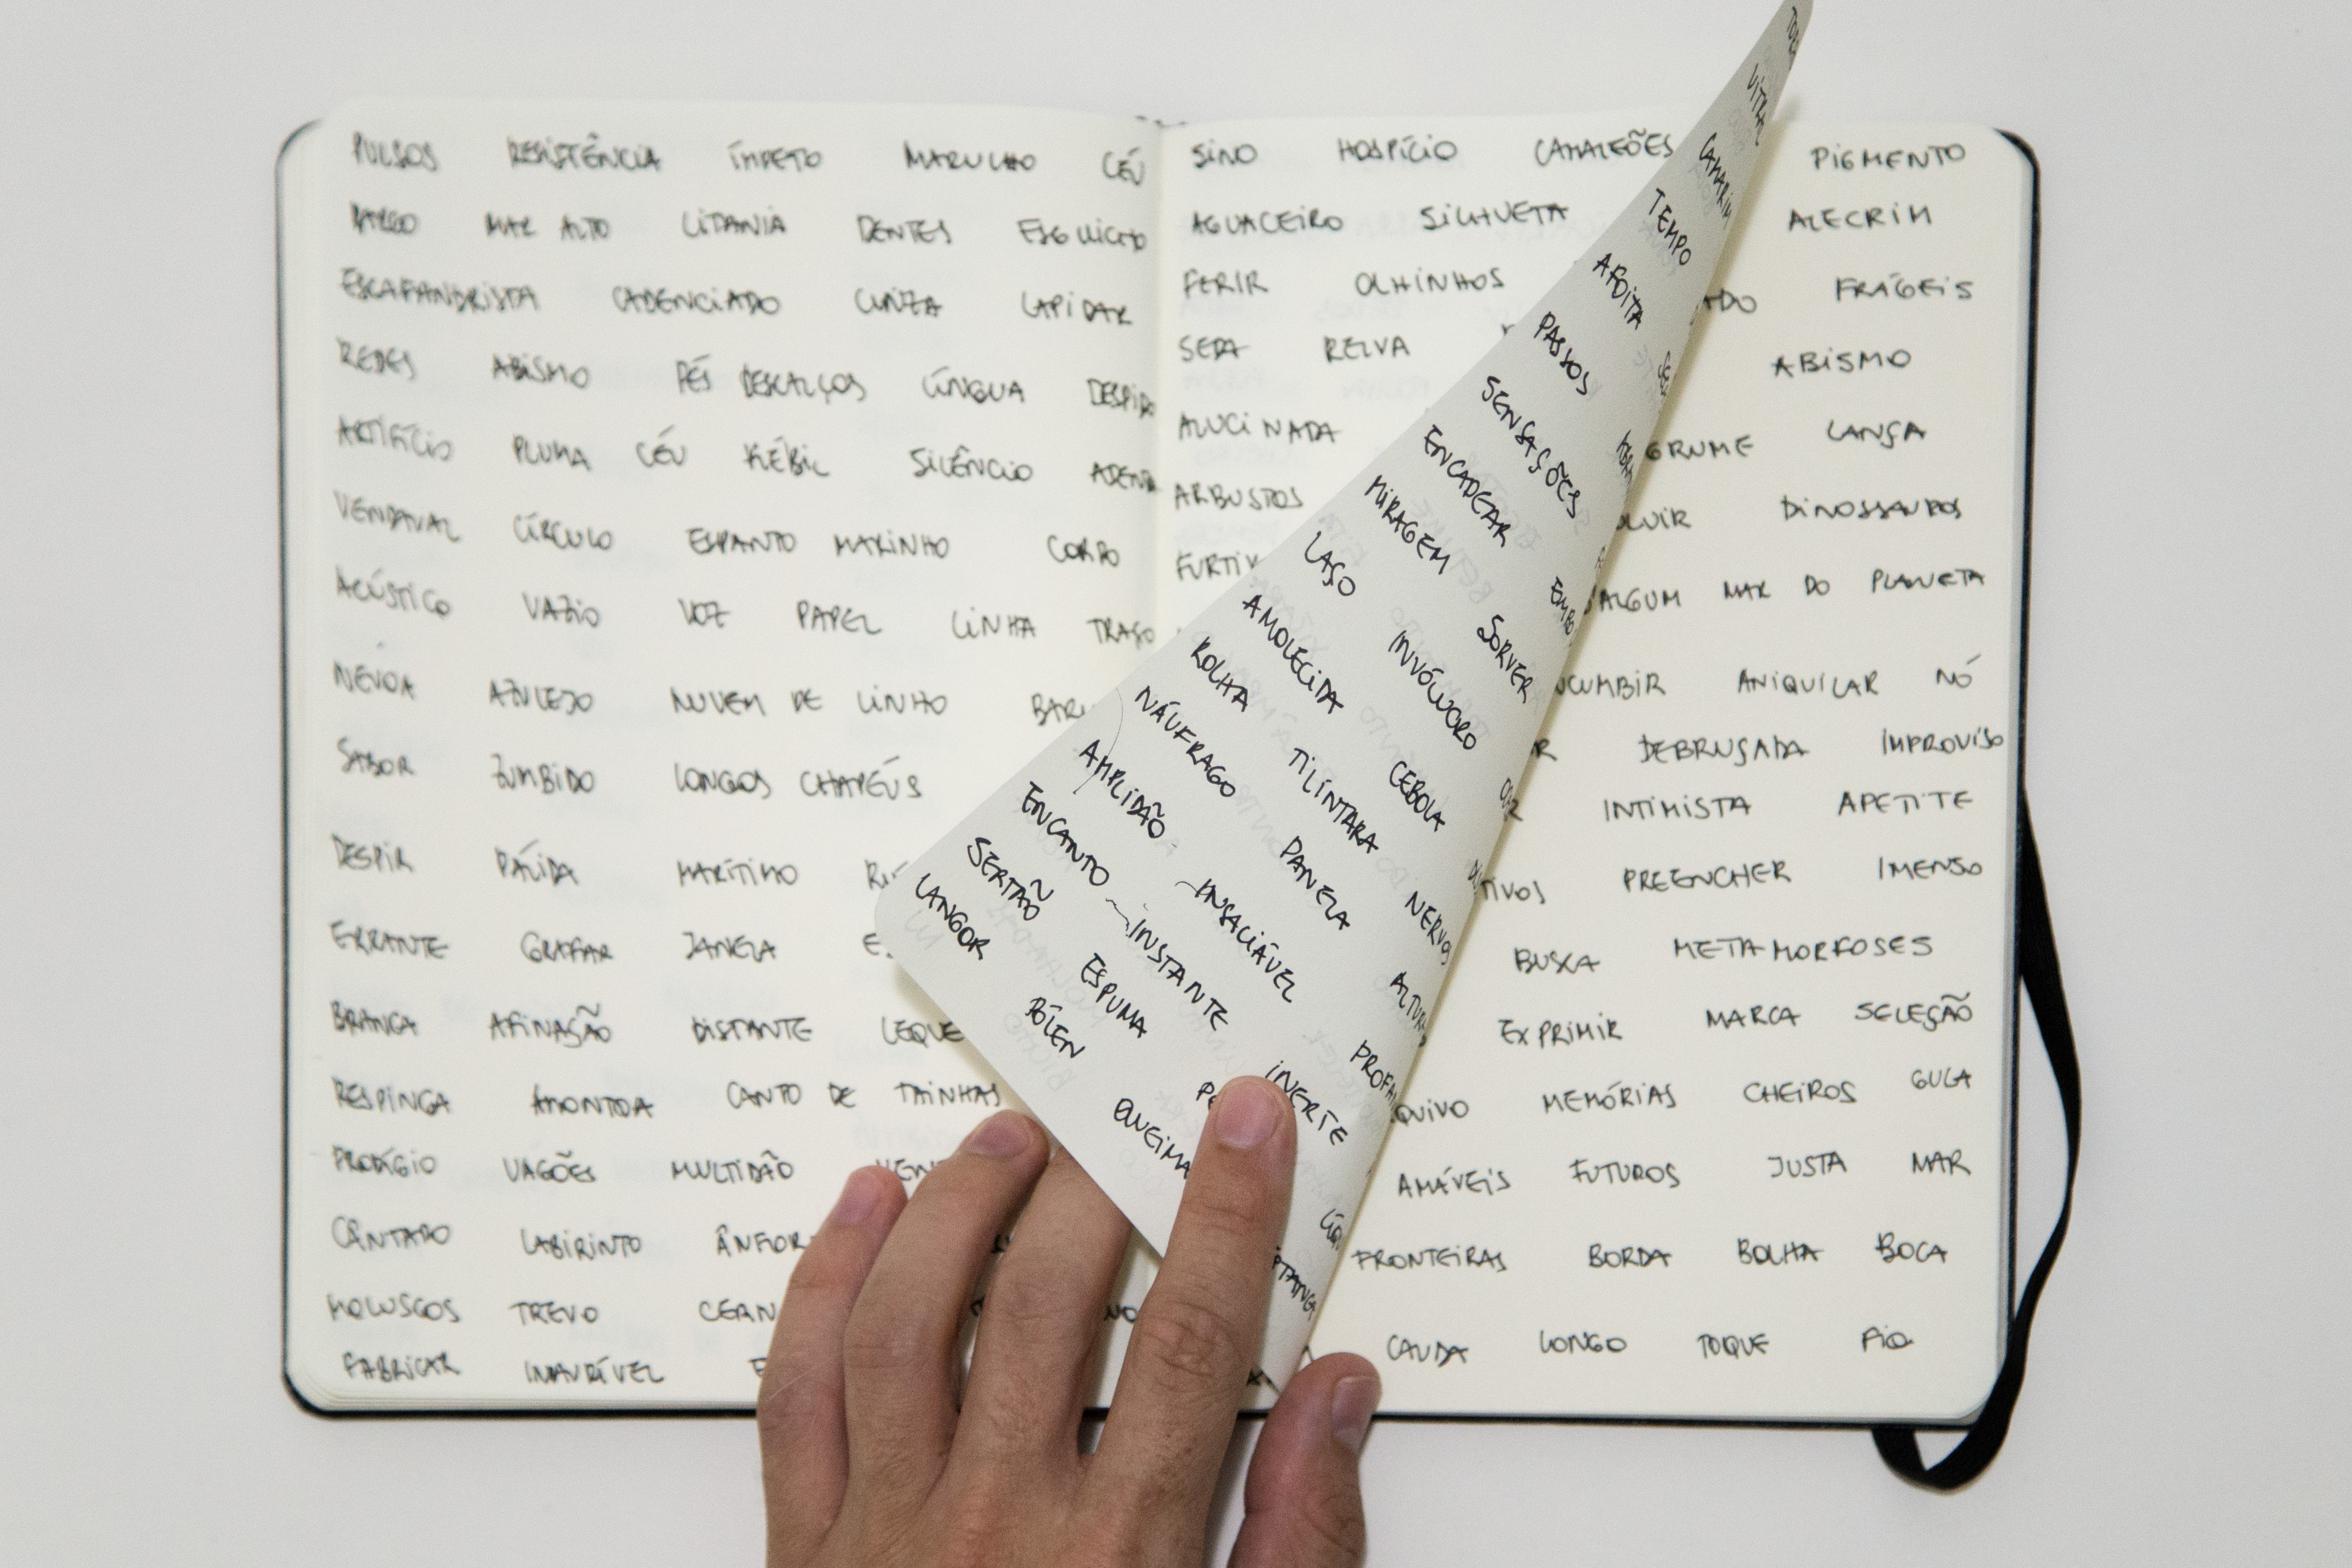 PULSOS RESISTÊNCIA ÍMPETO MARULHO CÉU
MAR ALTO LITANIA DENTES ESGUICHO
ESCAFANDRISTA CADENCIADO CINZA LAPIDAR
REDES ABISMO PÉS DESCALÇOS LÍNGUA DESPIDO
ARTIFÍCIO PLUMA CÉU FLÉBIL SILÊNCIO
VENDAVAL CÍRCULO ESPANTO MARINHO CORPO
ACÚSTICO VAZIO VOZ PAPEL LINHA TRAÇO
NÉVOA AZULEJO NUVEM DE LINHO
SABOR ZUMBIDO LONGOS CHAPÉUS
DESPIR PÁLIDA MARÍTIMO
ERRANTE GRAFAR JANELA
BRANCA AFINAÇÃO DISTANTE LEQUE
RESPINGA AMONTOA CANTO DE TAINHAS
PRODÍGIO VAGÕES MULTIDÃO
CÂNTARO LABIRINTO
MOLUSCOS TREVO
FABRICAR INAURÍVEL
SINO HOSPÍCIO CAMALEÕES PIGMENTO
AGUACEIRO SILHUETA ALECRIM
FERIR OLHINHOS FRÁGEIS
SEDA RELVA ABISMO
ALUCINADA GRUME LANÇA
ARBUSTOS DINOSSAUROS
FURTIV
ALGUM MAR DO PLANETA
UCUMBIR ANIQUILAR NÓ
DEBRUÇADA IMPROVISO
INTIMISTA APETITE
TIVOS PREENCHER IMENSO
BUSCA METAMORFOSES
EXPRIMIR MARCA SELEÇÃO
QUIVO MEMÓRIAS CHEIROS GULA
AMÁVEIS FUTUROS JUSTA MAR
FRONTEIRAS BORDA BOLHA BOCA
CAUDA LONGO TOQUE FIO
VITRAL
CAMARIM
TEMPO
AFOITA
PASSOS
SENSAÇÕES
ENCADEAR
MIRAGEM SORVER
LAÇO INVÓLUCRO
AMOLECIDA CEBOLA
ROLHA TILINTARA NERVOS
NÁUFRAGO PANELA ALTURA
AMPLIDÃO INSACIÁVEL PROFAN
ENCANTO INSTANTE INERTE
SERTÃO ESPUMA
LANGOR PÓLEN QUEIMA